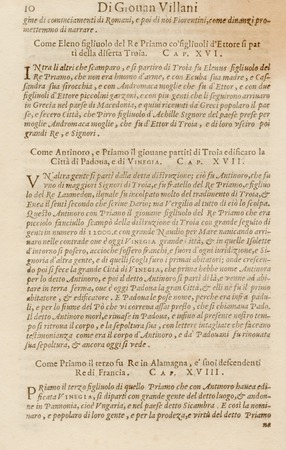 10 Di Giouan Villani
gine di cominciamenti di Romani, e poi di noi Fiorentini, come dinanzi pro-
mettemmo di narrare.
Come Eleno figliuolo del Re Priamo co'figliuoli d'Ettore si par
tì della diserta Troia. CAP. XVI.
INtra li altri che scamparo, e si partiro di Troia fu Elenus figliuolo del
Re Priamo, che non era huomo d'arme, e con Ecuba sua madre, e Cas-
sandra sua sirocchia, e con Andromaca moglie che fu d'Ettor, e con due
figliuoli d'Ettore piccolini garzoni, e con piu genti che li seguirono arriuaro
in Grecia nel paese di Macedonia, e quiui riceuuti da Greci popolaro il pae
se, e fecero città, che Pirro figliuolo d'Achille Signore del paese prese per
moglie, Andromaca moglie, che fu d'Ettor di Troia, e di loro vsciro poi
grandi Re, e Signori.
Come Antinoro, e Priamo il giouane partiti di Troia edificaro la
Città di Padoua, e di VINEGIA. CAP. XVII.
VN'altra gente si partì dalla detta distruzione; ciò fu, Antinoro, che fu
vno di maggiori Signori di Troia, e fu fratello del Re Priamo, e figliuolo
del Re Laumedon, ilquale fu incolpato molto del tradimento di Troia, &
Enea il sentì secondo che scriue Dario; ma Vergilio al tutto di ciò lo scolpa.
Questo, Antinoro con Priamo il giouane figliuolo del Re Priamo che era
picciolo fanciullo scampò della distruzione di Troia con grande seguito di
genti in numero di 12000. e con grande Nauilio per Mare nauicando arri-
uaro nelle contrade oue è oggi VINEGIA grande Città, & in quelle Isolette
d'intorno si posero, acciochè fossero franchi, e fuori d'ogni iuridizione, e Si-
gnoria d'altra gente, e di quelli scogli furo i primi abitatori; onde crescen-
do poi si fece la grande Città di VINEGIA, che prima hebbe nome Antinora
per lo detto Antinoro, e poi il detto Antinoro si partì di là, e venne ad abi-
tare in terra ferma, oue è oggi Padona la gran Città, & elli ne fu il primo
abitatore, & edificatore. E Padona le pose nome, perche era infra padu-
li, e per lo fiume del Pò che vi correua assai presso, che si chiamaua Pado.
Il detto, Antinoro morì, e rimase in Padoua, e infino al presente nostro tem-
po si ritroua il corpo, e la sepoltura sua, con lettere intagliate che faccano
testimonianza come era il corpo d'Antinoro, e da' Padouani fu rinouata
sua sepoltura, & ancora oggi si vede.
Come Priamo il terzo fu Re in Alamagna, e' suoi descendenti
Re di Francia. CAP. XVIII.
PRiamo il terzo figliuolo di quello Priamo che con Antinoro hauea edi-
ficata VINEGIA, si dipartì con grande gente del detto luogo, & andon-
ne in Pannonia, cioè Vngaria, e nel paese detto Sicambra. E così la nomi-
naro, e popolaro di loro gente, e per la prodeza, e virtù del detto Priamo
ne